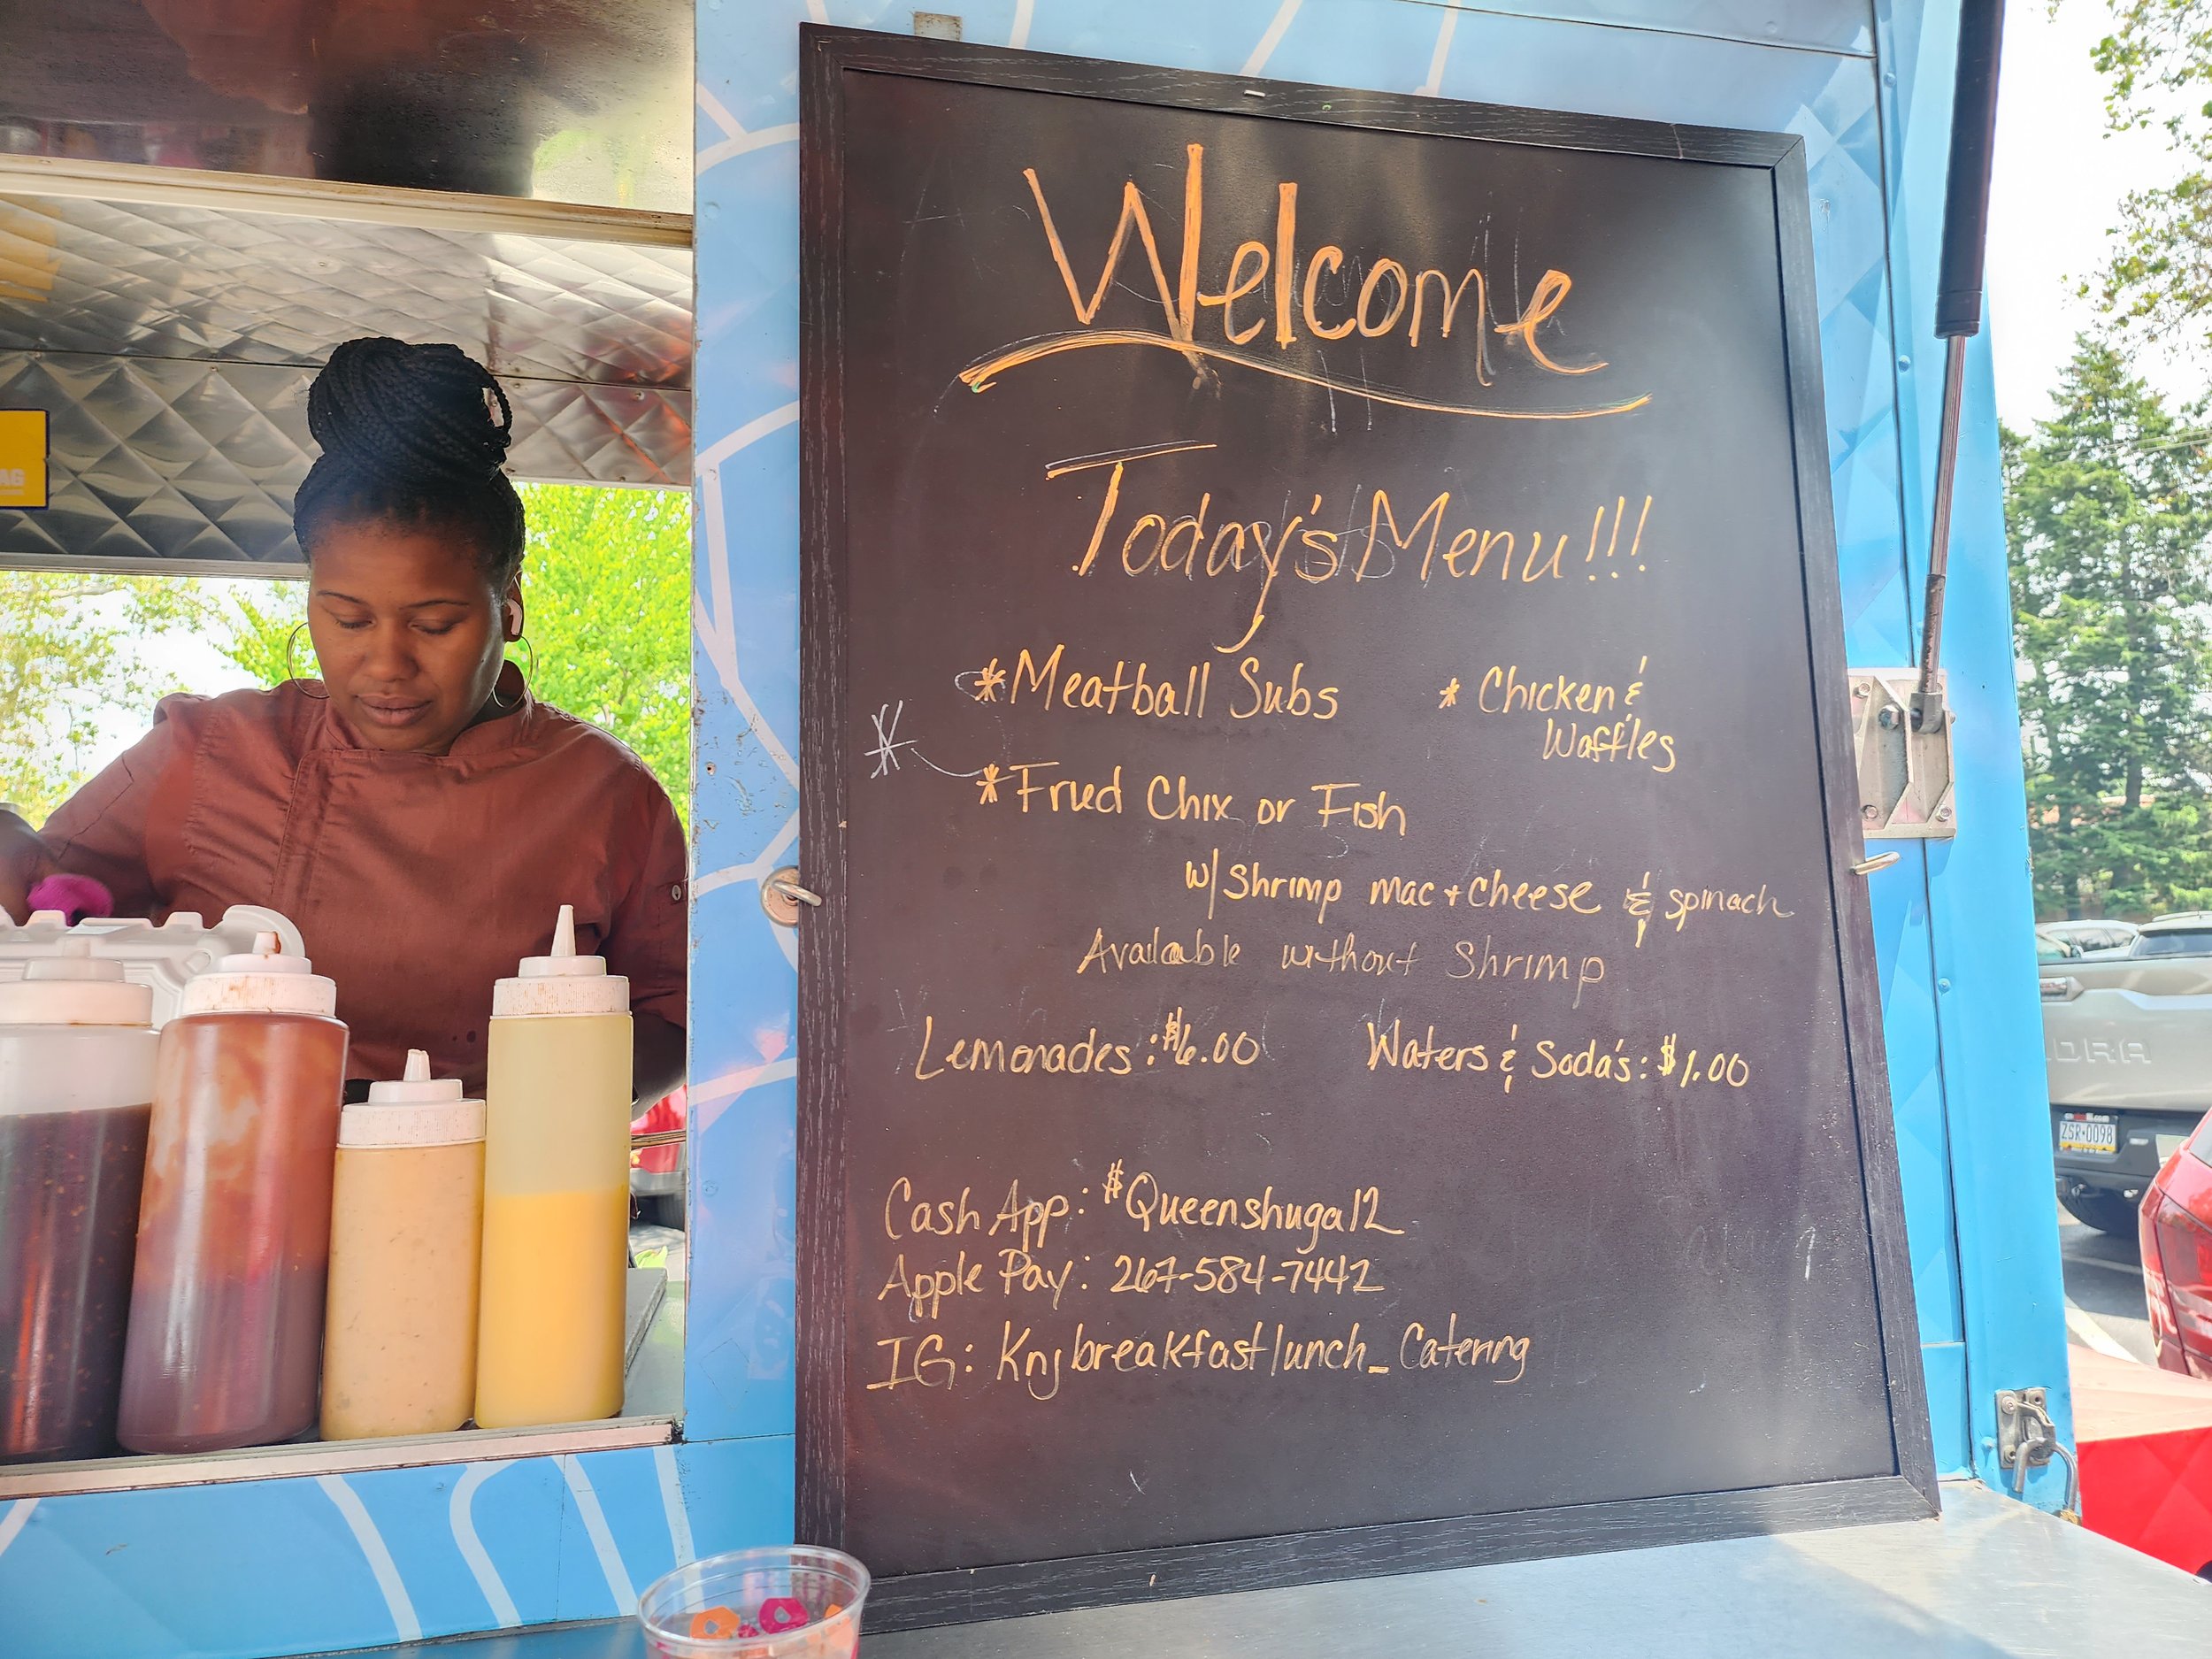 Welcome
Today's Menu!!!
*Meatball Subs
* Chicken &
Waffles
*Fried Chix or Fish
w/Shrimp mac + cheese & spinach
Available without Shrimp
Lemonades: $6.00
Waters & Soda's: $1.00
Cash App: $Queenshuga12
Apple Pay: 267-584-7442
IG: Knjbreakfastlunch_Catering
AG
DRA
ZSR-0098